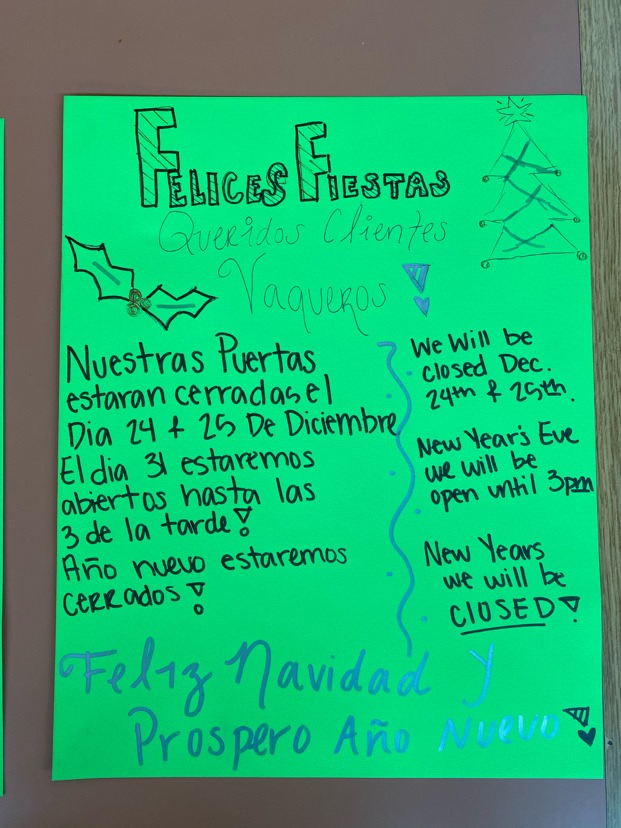 FELICES FIESTAS
Queridos Clientes
Vaqueros!
Nuestras Puertas
estaran cerradas el
Dia 24 & 25 De Diciembre
El dia 31 estaremos
abiertos hasta las
3 de la tarde!
Año nuevo estaremos
CERRADOS!
We Will be
closed Dec.
24th & 25th.
New Year's Eve
we will be
open until 3pm
New Years
we will be
CLOSED!
Feliz Navidad y
Prospero Año Nuevo!